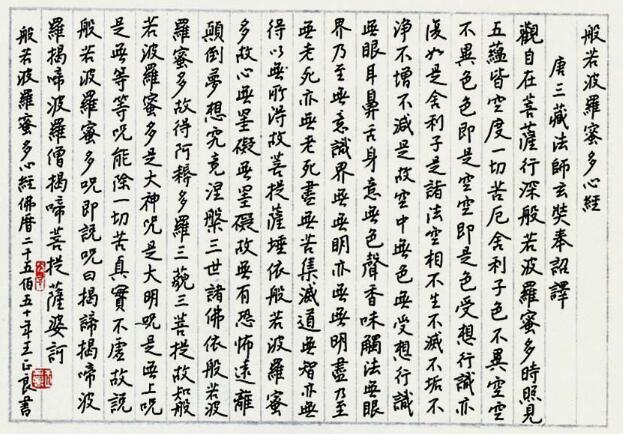 般若波羅蜜多心經
唐三藏法師玄奘奉詔譯
觀自在菩薩行深般若波羅蜜多時照見
五蘊皆空度一切苦厄舍利子色不異空空
不異色色即是空空即是色受想行識亦
復如是舍利子是諸法空相不生不滅不垢不
淨不增不減是故空中無色無受想行識
無眼耳鼻舌身意無色聲香味觸法無眼
界乃至無意識界無無明亦無無明盡乃至
無老死亦無老死盡無苦集滅道無智亦無
得以無所得故菩提薩埵依般若波羅蜜
多故心無罣礙無罣礙故無有恐怖遠離
顛倒夢想究竟涅槃三世諸佛依般若波
羅蜜多故得阿耨多羅三藐三菩提故知般
若波羅蜜多是大神咒是大明咒是無上咒
是無等等咒能除一切苦真實不虛故說
般若波羅蜜多咒即說咒曰揭諦揭啼波
羅揭啼波羅僧揭啼菩提薩婆訶
般若波羅蜜多心經佛曆二千五佰五十年王正良書